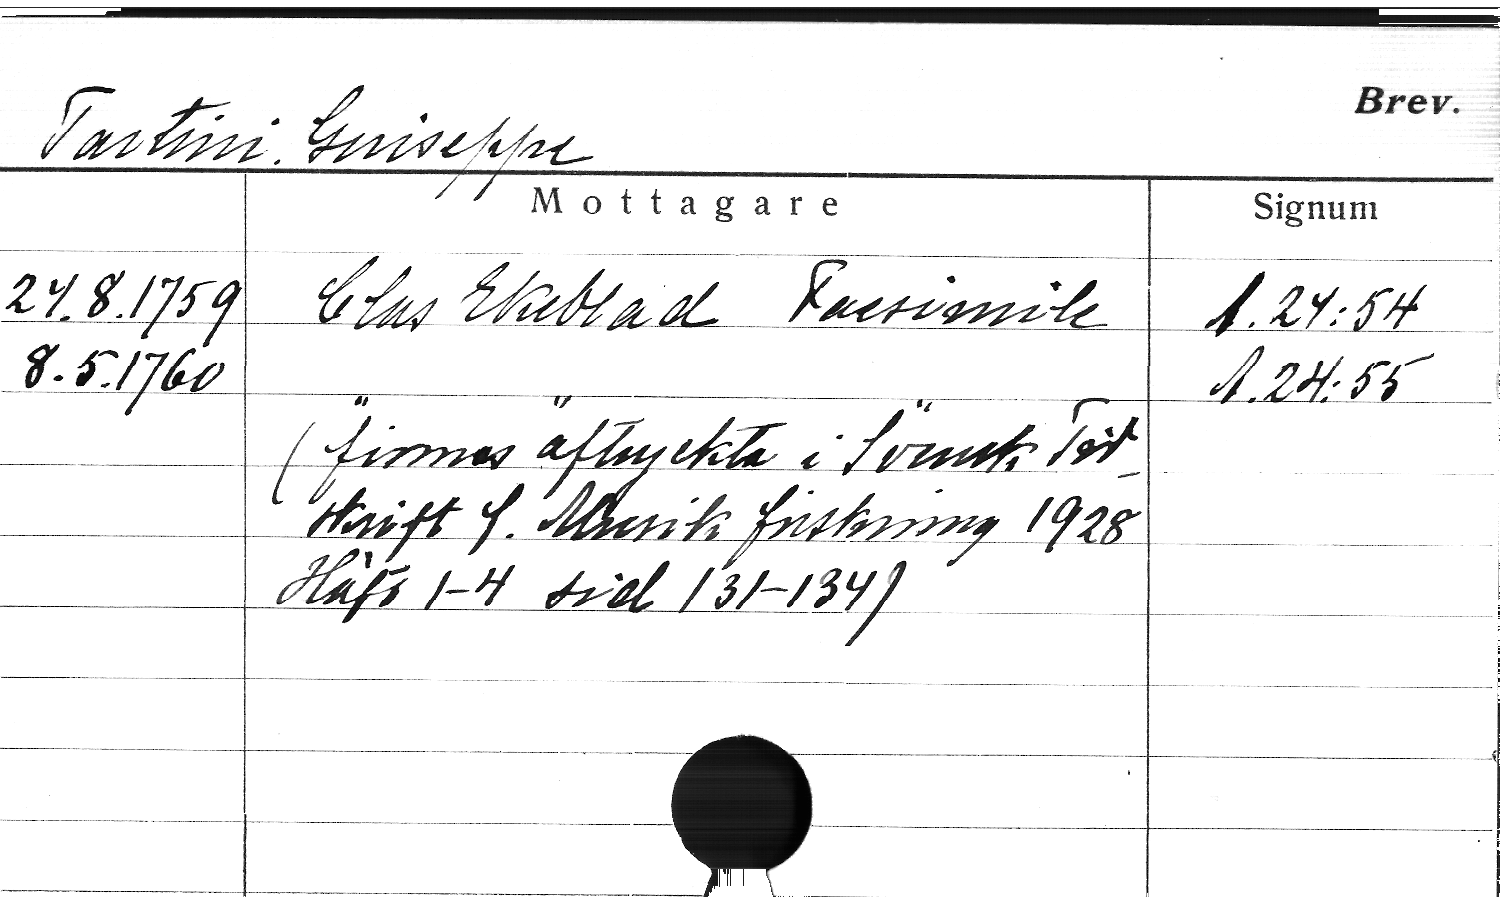 Brev.
Tartini. Guiseppe
Mottagare Signum
24.8.1759 Clas Ekeblad Facsimile A.24:54
8.5.1760 " " " A.24:55
(finnas aftryckta i Svensk Tid-
skrift f. Musikforskning 1928
Häft 1-4 sid 131-134)